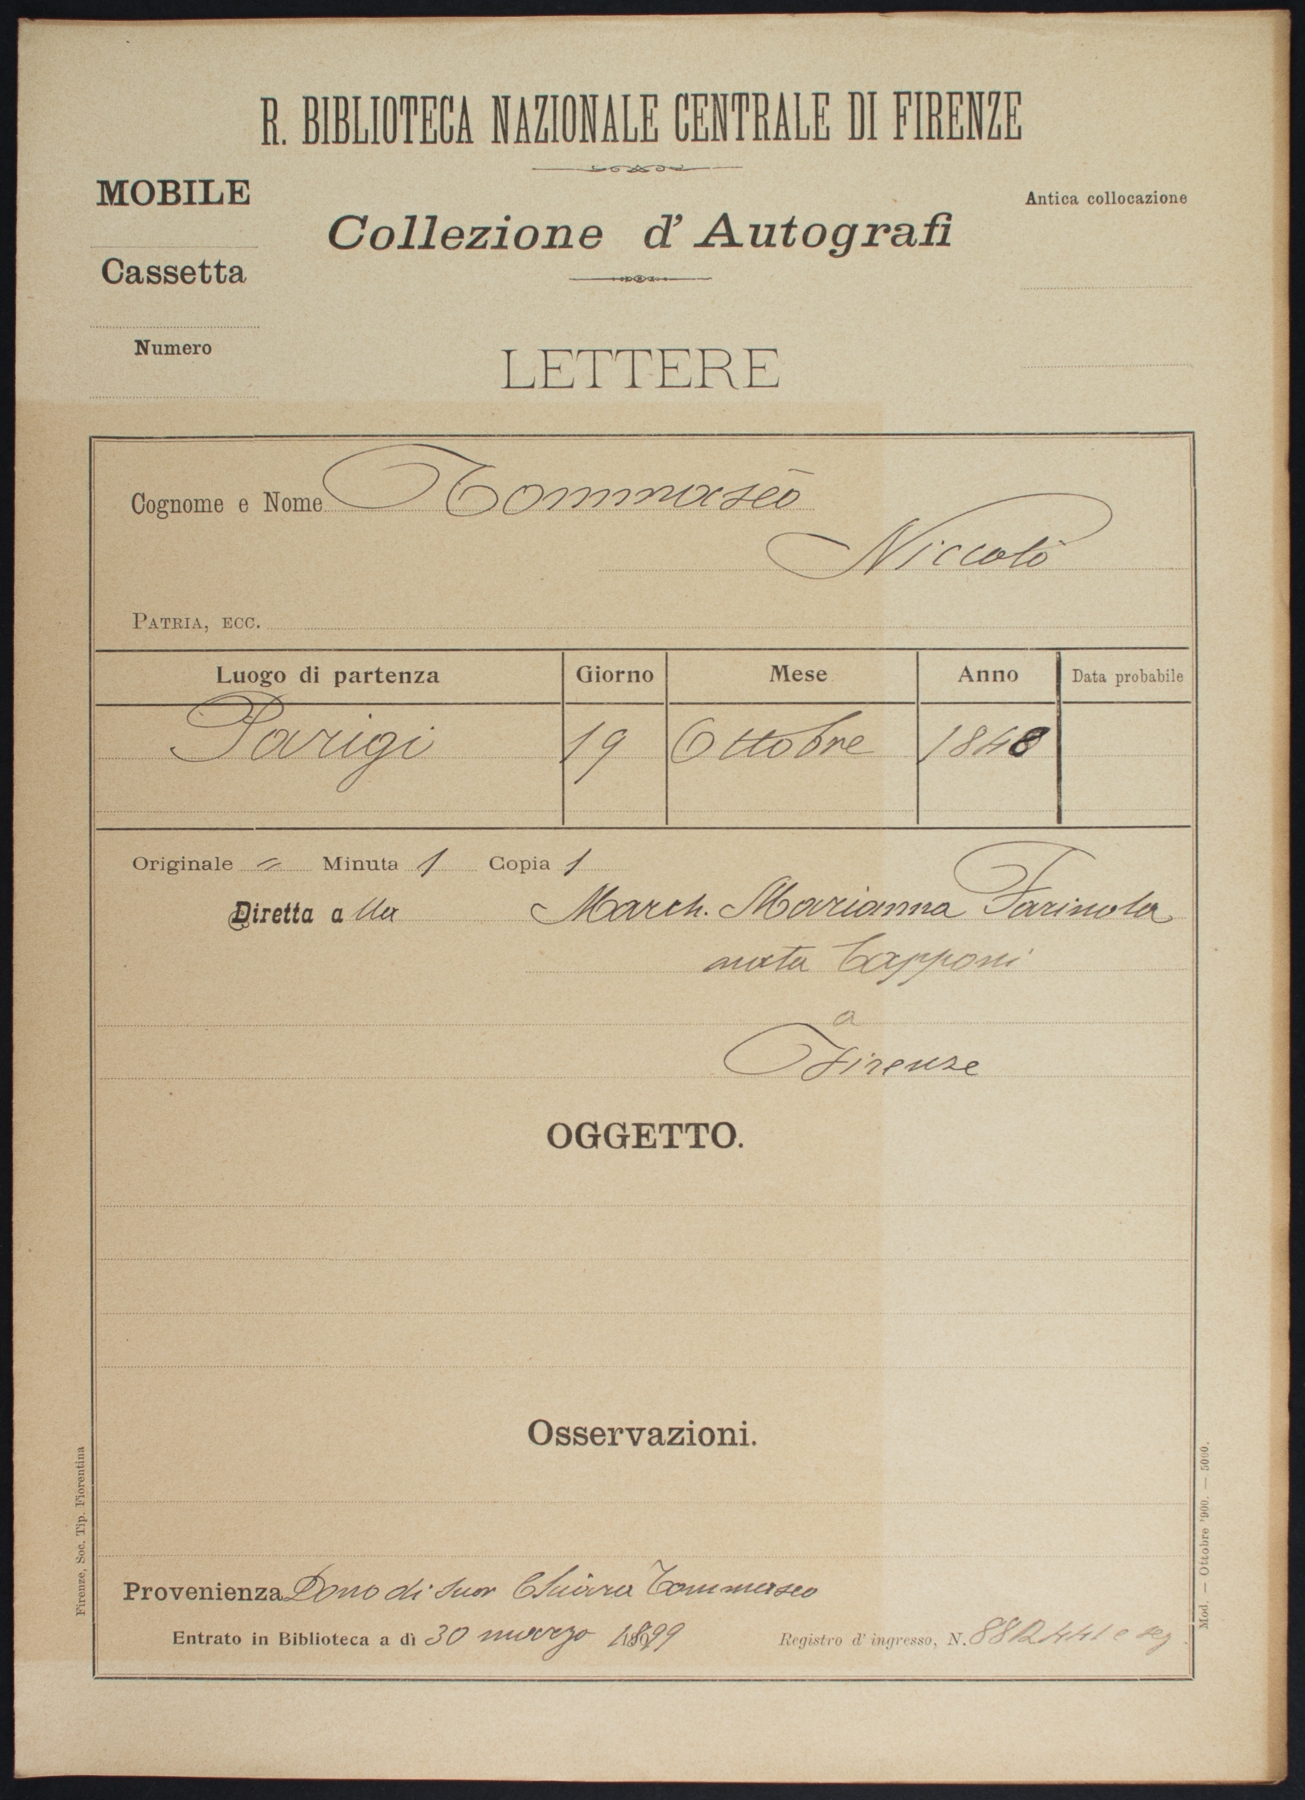 R. BIBLIOTECA NAZIONALE CENTRALE DI FIRENZE
MOBILE
Collezione d' Autografi
Antica collocazione
Cassetta
Numero
LETTERE
Cognome e Nome Tommaseo
Niccolò
PATRIA, ECC.
Luogo di partenza Giorno Mese Anno Data probabile
Parigi 19 Ottobre 1848
Originale = Minuta 1 Copia 1
Diretta a lla March. Marianna Farinola
nata Capponi
a
Firenze
OGGETTO.
Osservazioni.
Provenienza Dono di Suor Chiara Tommaseo
Entrato in Biblioteca a dì 30 marzo 1899 Registro d' ingresso, N. e seg.
Firenze, Soc. Tip. Fiorentina
Mod. — Ottobre '900. — 5000.